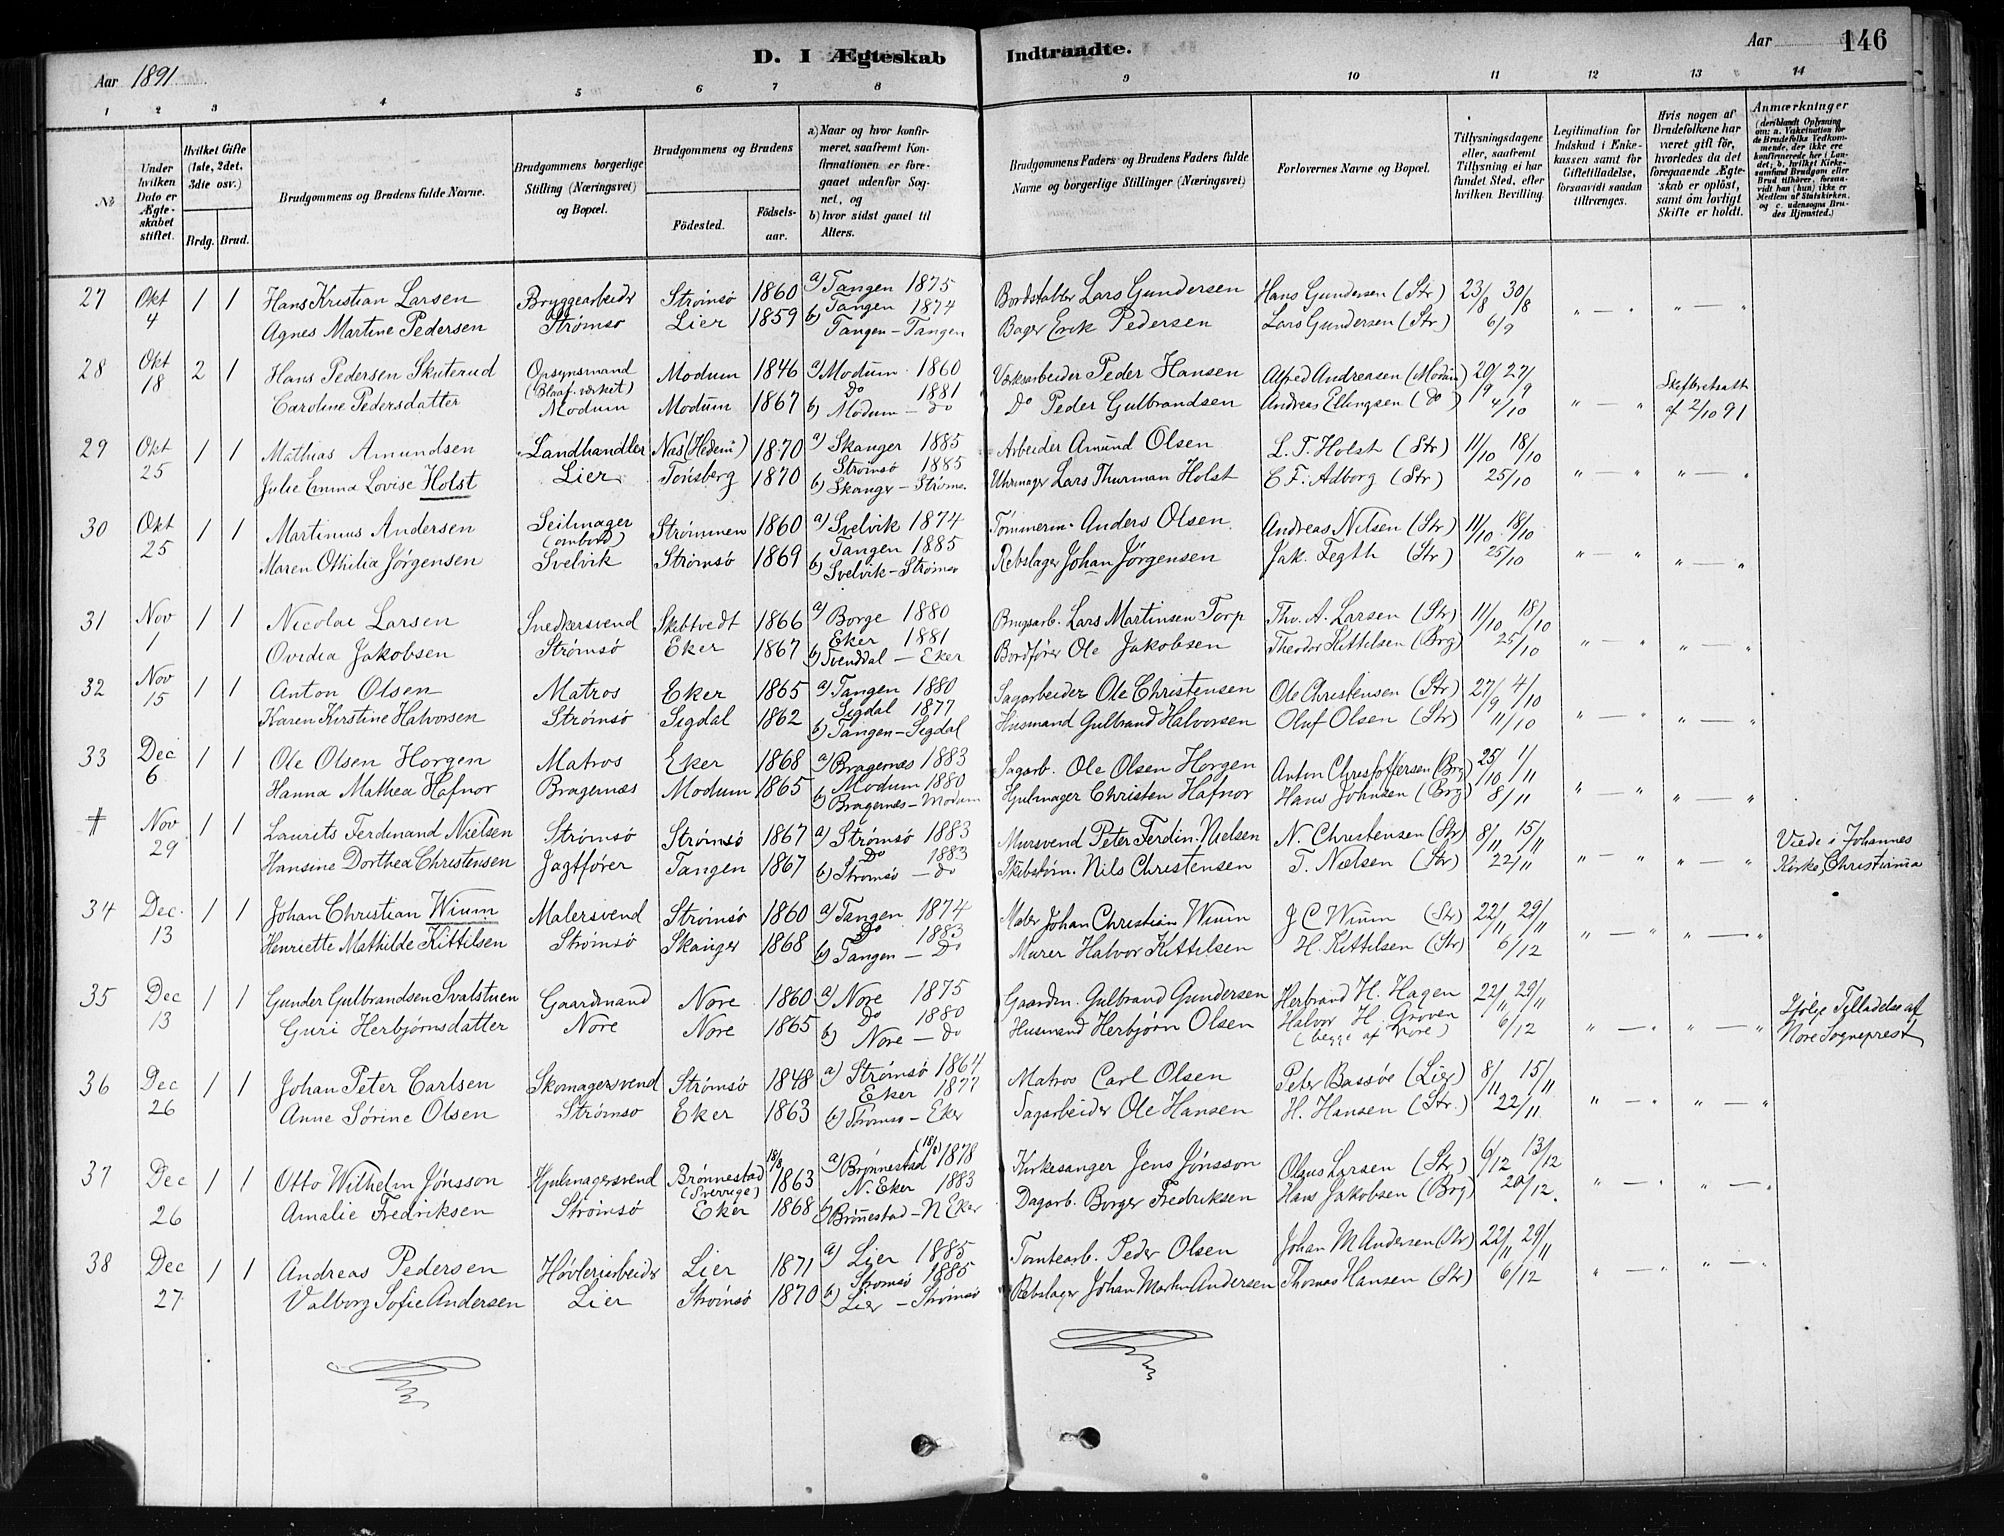 D. I Ægteskab Indtraadte.
Aar 1891
Aar
146
1 2 3 4 5 6 7 8 9 10 11 12 13 14
No
Under hvilken Dato er Ægteskabet stiftet.
Hvilket Gifte (1ste, 2det, 3die osv.)
Brdg. Brud.
Brudgommens og Brudens fulde Navne.
Brudgommens borgerlige Stilling (Næringsvei) og Bopæl.
Brudgommens og Brudens
Fødested.
Fødselsaar.
a) Naar og hvor konfirmeret, saafremt Konfirmationen er foregaaet udenfor Sognet, og
b) hvor sidst gaaet til Alters.
Brudgommens Faders og Brudens Faders fulde Navne og borgerlige Stillinger (Næringsvei)
Forlovernes Navne og Bopæl.
Tillysningsdagene eller, saafremt Tillysning ei har fundet Sted, efter hvilken Bevilling.
Legitimation for Indskud i Enkekassen samt for Giftetilladelse, forsaavidt saadan tiltrænges.
Hvis nogen af Brudefolkene har været gift før, hvorledes da det foregaaende Ægteskab er opløst, samt om lovligt Skifte er holdt.
Anmærkninger (deriblandt Oplysning om: a. Vakcination for de Brudefolks Vedkommende, der ikke ere konfirmerede her i Landet; b. hvilket Kirkesamfund Brudgom eller Brud tilhører, forsaavidt han (hun) ikke er Medlem af Statskirken, og c. udensogns Brudes Hjemsted.)
27 Okt 1 1 Hans Kristian Larsen Bryggearbeidr Strømsø 1860 a) Tangen 1875 Bordstabler Lars Gundersen Hans Gundersen (Str) 23/8 30/8 " — " " — "
4 Agnes Martine Pedersen Strømsø Lier 1859 Tangen 1874 b) Tangen - Tangen Bager Erik Pedersen Lars Gundersen (Str) 6/9
28 Okt 2 1 Hans Pedersen Skuterud Opsynsmand (Blaaf. værket) Modum 1846 a) Modum 1860 Værksarbeider Peder Hansen Alfred Andreasen (Modum) 20/9 27/9 " — " Skifteretsatt
18 Caroline Pedersdatter Modum Modum 1867 Do 1881 b) Modum - do Do Peder Gulbrandsen Andreas Ellingsen (do) 4/10 af 2/10 91
29 Okt 1 1 Mathias Amundsen Landhandler Næs (Hedem) 1870 a) Skanger 1885 Arbeider Amund Olsen L. T. Holst (Str) 11/10 18/10 " — " " — "
25 Julie Emma Lovise Holst Lier Tønsberg 1870 Strømsø 1885 b) Skanger - Strømsø Uhrmager Lars Thurman Holst C. F. Adborg (Str) 25/10
30 Okt 1 1 Martinius Andersen Seilmager (ombord) Strømmen 1860 a) Svelvik 1874 Tømmerm. Anders Olsen Andreas Nilsen (Str) 11/10 18/10 " — " " — "
25 Maren Othilia Jørgensen Svelvik Strømsø 1869 Tangen 1885 b) Svelvik - Strømsø Rebslager Johan Jørgensen Jak. Fegth (Str) 25/10
31 Nov 1 1 Nicolai Larsen Snedkersvend Skibtvedt 1866 a) Borge 1880 Brugsarb. Lars Martinsen Torp Thv. A. Larsen (Str) 11/10 18/10 " — " " — "
1 Ovidia Jakobsen Strømsø Eker 1867 Eker 1881 b) Svenddal - Eker Bordfører Ole Jakobsen Theodor Kittilsen (Brg) 25/10
32 Nov 1 1 Anton Olsen Matros Eker 1865 a) Tangen 1880 Sagarbeider Ole Christensen Ole Christensen (Str) 27/9 4/10 " — " " — "
15 Karen Kirstine Halvorsen Strømsø Sigdal 1862 Sigdal 1877 b) Tangen - Sigdal Husmand Gulbrand Halvorsen Oluf Olsen (Str) 11/10
33 Dec 1 1 Ole Olsen Horgen Matros Eker 1868 a) Bragernæs 1883 Sagarb. Ole Olsen Horgen Anton Christoffersen (Brg) 25/10 1/11 " — " " — "
6 Hanna Mathea Hafnor Bragernæs Modum 1865 Modum 1880 b) Bragernæs - Modum Hjulmager Christen Hafnor Hans Johnsen (Brg) 8/11
# Nov 1 1 Laurits Ferdinand Nielsen Strømsø Strømsø 1867 a) Strømsø 1883 Mursvend Peter Ferdin. Nielsen N. Christensen (Str) 8/11 15/11 " — " " — " Viede i Johannes
29 Hansine Dorthea Christensen Jagtfører Tangen 1867 Do 1883 b) Strømsø - do Skibstøm. Nils Christensen T. Nielsen (Str) 22/11 Kirke, Christiania
34 Dec. 1 1 Johan Christian Wium Malersvend Strømsø 1860 a) Tangen 1874 Maler Johan Christian Wium J C Wium (Str) 22/11 29/11 " — " " — "
13 Henriette Mathilde Kittilsen Strømsø Skanger 1868 Do 1883 b) Tangen - Do Murer Halvor Kittilsen H. Kittilsen (Str) 6/12
35 Dec 1 1 Gunder Gulbrandsen Svalstuen Gaardmand Nore 1860 a) Nore 1875 Gaardm. Gulbrand Gundersen Herbrand H. Hagen 22/11 29/11 " — " " — " Ifølge Tilladelse af
13 Guri Herbjørnsdatter Nore Nore 1865 Do 1880 b) Nore - do Husmand Herbjørn Olsen Halvor H. Groven (begge af Nore) 6/12 Nore Sogneprest
36 Dec 1 1 Johan Peter Carlsen Skomagersvend Strømsø 1848 a) Strømsø 1864 Matros Carl Olsen Peter Bassøe (Lier) 8/11 15/11 " — " " — "
26 Anne Sørine Olsen Strømsø Eker 1863 Eker 1877 b) Strømsø - Eker Sagarbeider Ole Hansen H. Hansen (Str.) 22/11
37 Dec 1 1 Otto Wilhelm Jönsson Hjulmagersvend Brønnestad (Sverrige) 18/3 1863 a) Brønnestad 1878 Kirkesanger Jens Jönsson Olaus Larsen (Str) 6/12 13/12 " — " " — "
26 Amalie Fredriksen Strømsø Eker 1868 N. Eker 1883 b) Brönestad - N Eker Dagarb. Borger Fredriksen Hans Jakobsen (Brg) 20/12.
38 Dec 1 1 Andreas Pedersen Høvleriarbeidr Lier 1871 a) Lier 1885 Tomtearb. Peder Olsen Johan M Andersen (Str) 22/11 29/11 " — " " — "
27 Valborg Sofie Andersen Lier Strømsø 1870 Strømsø 1885 b) Lier - Strømsø Rebslager Johan Martin Andersen Thomas Hansen (Str) 6/12